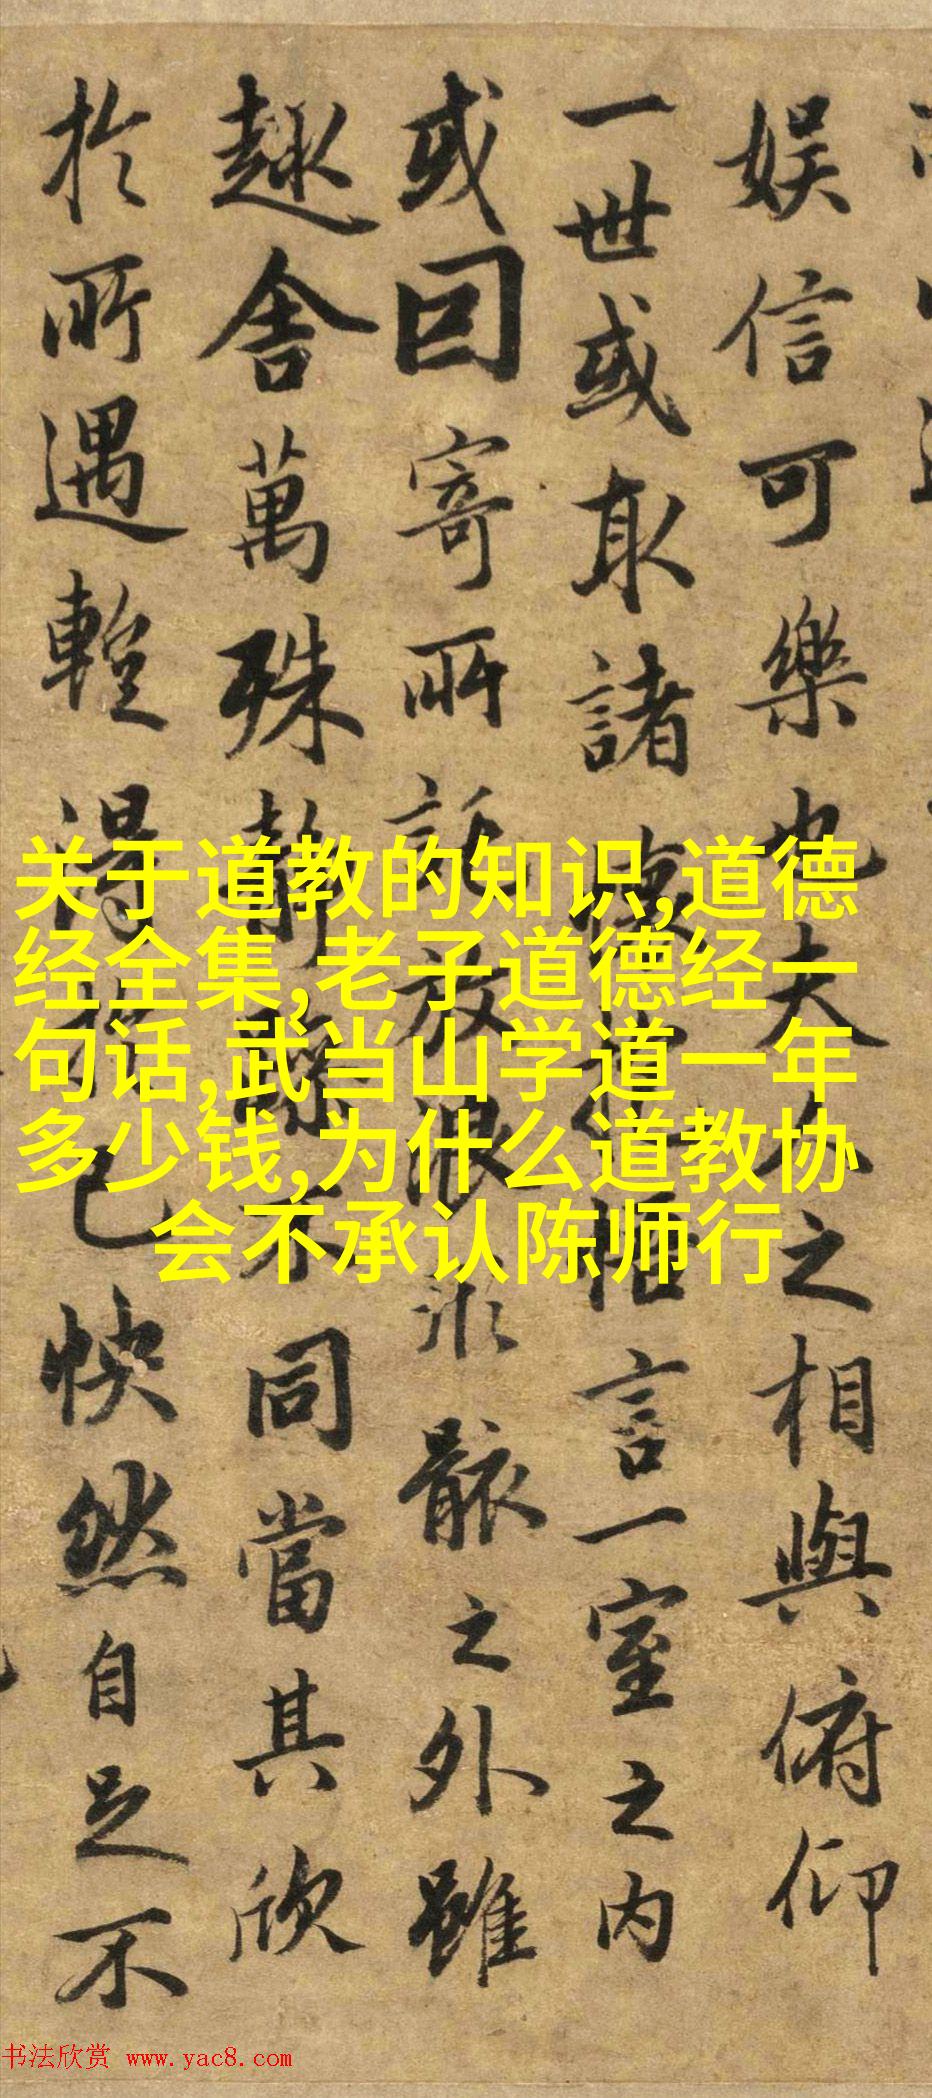 娱信可樂也夫人之相與俯仰
一世或取諸懷抱悟言一室之内
或因寄所託放浪形骸之外雖
趣舍萬殊静躁不同當其欣
於所遇輙得於己怏然自足不
关于道教的知识,道德
经全集,老子道德经一
句话,武当山学道一年
多少钱,为什么道教协
会不承认陈师行
书法欣赏 www.yac8.com